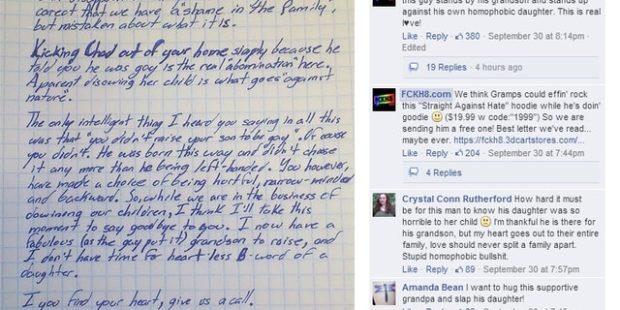 correct that we have a "shame in the family,
but mistaken about what it is.
Kicking Chad out of your home simply because he
told you he was gay is the real "abomination" here.
A parent disowning her child is what goes "against
nature".
The only intelligent thing I heard you saying in all this
was that "you didn't raise your son to be gay". Of course
you didn't. He was born this way and didn't choose
it any more than he being left-handed. You however,
have made a choice of being hurtful, narrow-minded
and backward. So, while we are in the business of
disowning our children, I think I'll take this
moment to say goodbye to you. I now have a
fabulous (as the gay put it) grandson to raise, and
I don't have time for heart less B-word of a
daughter.
If you find your heart, give us a call.
this guy stands by his grandson and stands up
against his own homophobic daughter. This is real
l♥ve!
Like · Reply · 380 · September 30 at 8:14pm ·
Edited
19 Replies · 4 hours ago
FCKH8.com We think Gramps could effin' rock
this "Straight Against Hate" hoodie while he's doin'
goodie 🙂 ($19.99 w code:"1999") So we are
sending him a free one! Best letter we've read...
maybe ever. https://fckh8.3dcartstores.com/...
Like · Reply · 204 · September 30 at 7:44pm
4 Replies
Crystal Conn Rutherford How hard it must
be for this man to know his daughter was so
horrible to her child 🙁 I'm thankful he is there for
his grandson, but my heart goes out to their entire
family, love should never split a family apart.
Stupid homophobic bullshit.
Like · Reply · 89 · September 30 at 7:57pm
Amanda Bean I want to hug this supportive
grandpa and slap his daughter!